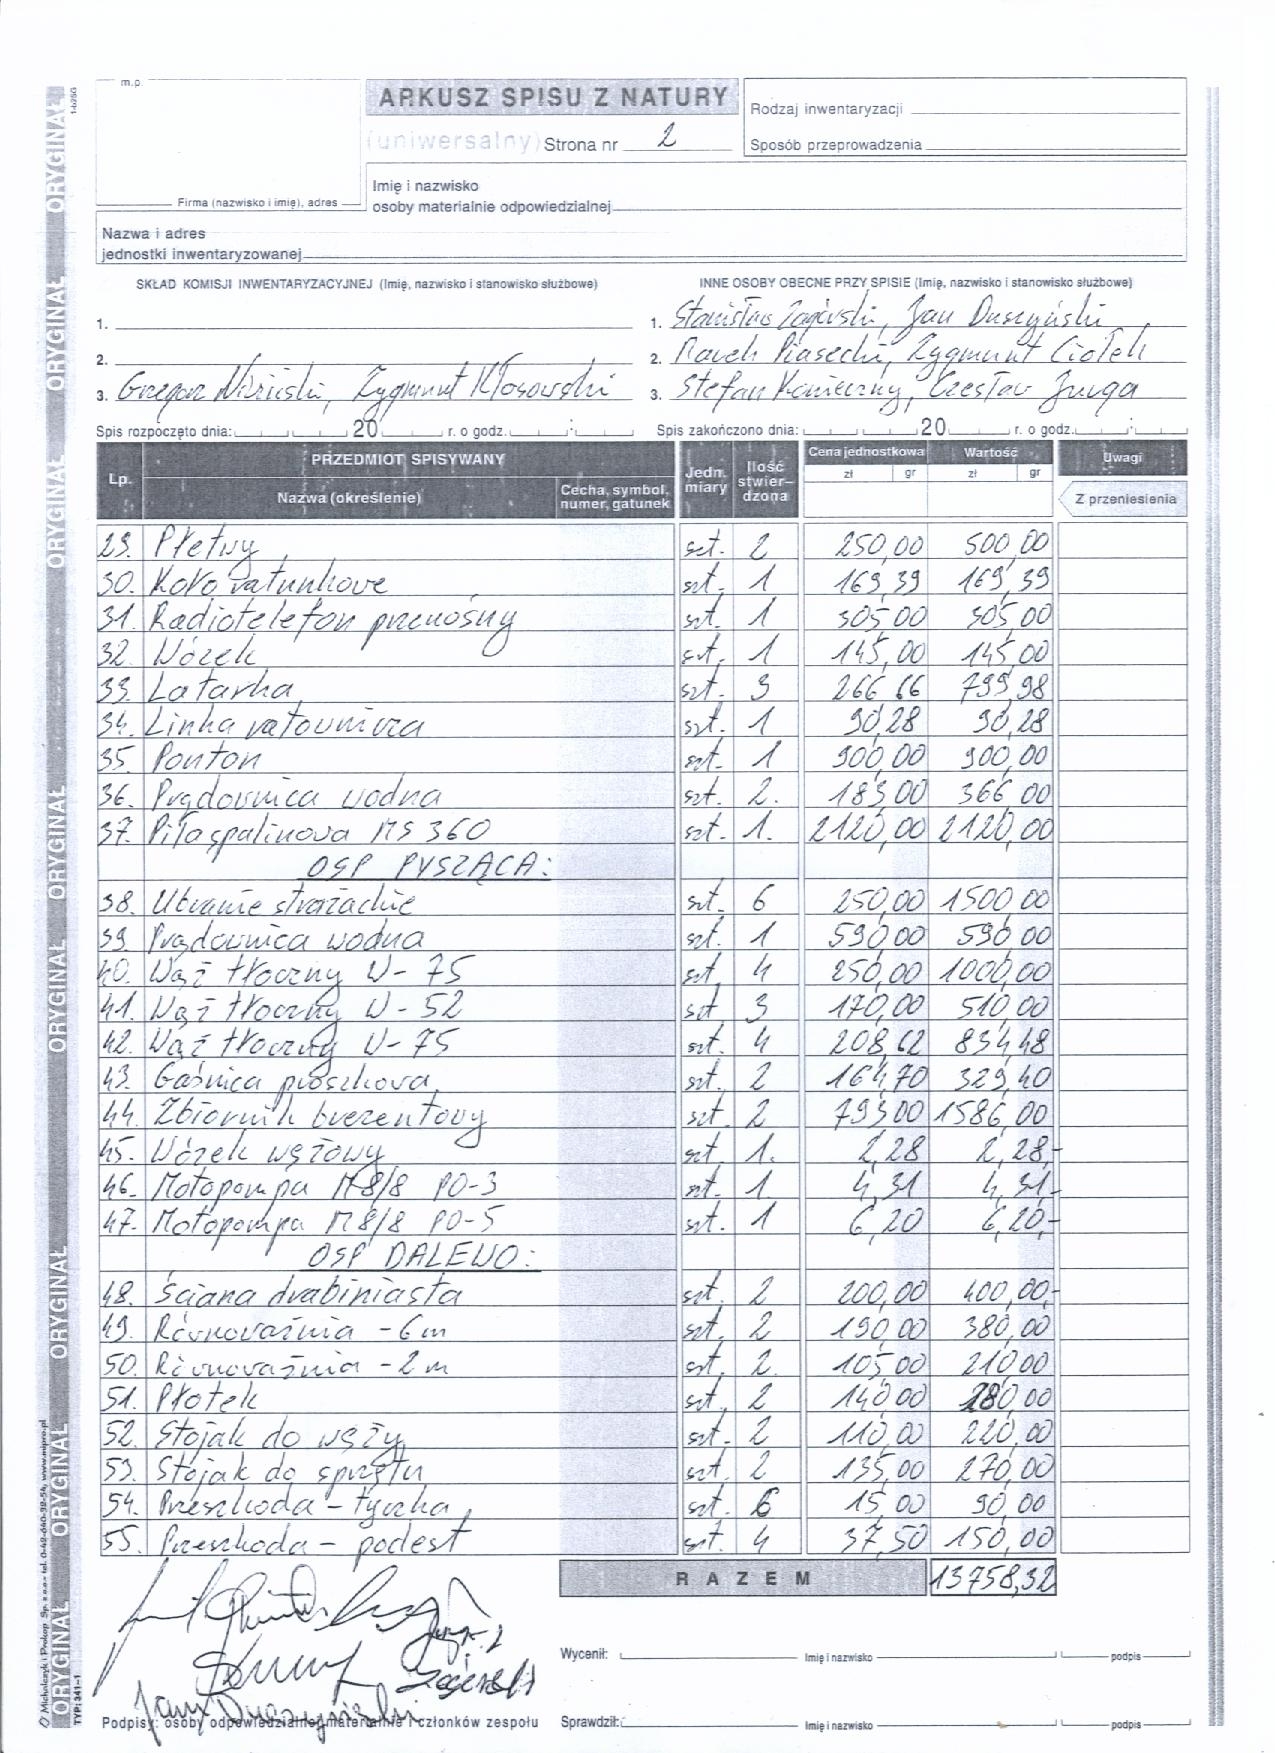 m.p.
ARKUSZ SPISU Z NATURY
(uniwersalny) Strona nr 2
Rodzaj inwentaryzacji
Sposób przeprowadzenia
Firma (nazwisko i imię), adres
Imię i nazwisko
osoby materialnie odpowiedzialnej
Nazwa i adres
jednostki inwentaryzowanej
SKŁAD KOMISJI INWENTARYZACYJNEJ (Imię, nazwisko i stanowisko służbowe)
1.
2.
3. Grzegorz Niziński, Zygmunt Kłosowski
INNE OSOBY OBECNE PRZY SPISIE (Imię, nazwisko i stanowisko służbowe)
1. Stanisław Zagórski, Jan Duszyński
2. Marek Piasecki, Zygmunt Ciołek
3. Stefan Konieczny, Czesław Jurga
Spis rozpoczęto dnia: 20 r. o godz. :
Spis zakończono dnia: 20 r. o godz. :
Lp. PRZEDMIOT SPISYWANY Jedn. miary Ilość stwier-dzona Cena jednostkowa Wartość Uwagi
Nazwa (określenie) Cecha, symbol, numer, gatunek zł gr zł gr Z przeniesienia
29. Płetwy szt. 2 250,00 500,00
30. Koło ratunkowe szt. 1 169,39 169,39
31. Radiotelefon przenośny szt. 1 305,00 305,00
32. Wózek szt. 1 145,00 145,00
33. Latarka szt. 3 266,66 799,98
34. Linka ratownicza szt. 1 90,28 90,28
35. Ponton szt. 1 900,00 900,00
36. Prądownica wodna szt. 2. 183,00 366,00
37. Piła spalinowa MS 360 szt. 1. 2120,00 2120,00
OSP PYSZĄCA:
38. Ubranie strażackie szt. 6 250,00 1500,00
39. Prądownica wodna szt. 1 590,00 590,00
40. Wąż tłoczny W-75 szt 4 250,00 1000,00
41. Wąż tłoczny W-52 szt 3 170,00 510,00
42. Wąż tłoczny W-75 szt. 4 208,62 834,48
43. Gaśnica proszkowa szt. 2 164,70 329,40
44. Zbiornik brezentowy szt. 2 793,00 1586,00
45. Wózek wężowy szt. 1. 2,28 2,28,-
46. Motopompa M8/8 PO-3 szt. 1 4,31 4,31-
47. Motopompa M8/8 PO-5 szt. 1 6,20 6,20,-
OSP DALEWO:
48. Ściana drabiniasta szt. 2 200,00 400,00,-
49. Równoważnia - 6m szt. 2 190,00 380,00
50. Równoważnia - 2m szt. 2. 105,00 210,00
51. Płotek szt. 2 140,00 280,00
52. Stojak do węży szt. 2 110,00 220,00
53. Stojak do sprzętu szt. 2 135,00 270,00
54. Przeszkoda - tyczka szt. 6 15,00 90,00
55. Przeszkoda - podest szt. 4 37,50 150,00
RAZEM 13758,32
Jan Duszyński
Podpisy: osoby odpowiedzialnej materialnie i członków zespołu
Wycenił: Imię i nazwisko podpis
Sprawdził: Imię i nazwisko podpis
ORYGINAŁ ORYGINAŁ ORYGINAŁ ORYGINAŁ ORYGINAŁ ORYGINAŁ ORYGINAŁ ORYGINAŁ
Michalczyk i Prokop Sp. z o.o. tel. 0-42-640-92-54, www.mipro.pl
TYP: 341-1